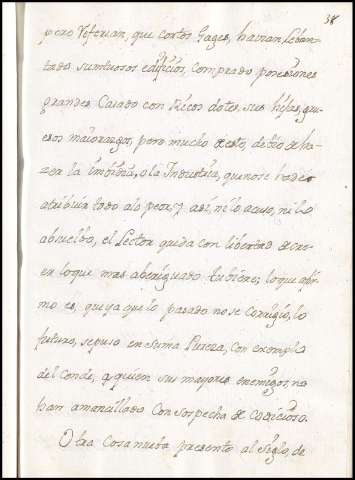 38
pero referian, que cortos Gages, havian Leban-
tado sumtuosos edificios, comprado posesiones
grandes Casado con Ricos dotes, sus hijas, gru-
esos maiorazgos, pero mucho de esto, debio de ha-
zer la embidia, o la Industria, que no se ha de
atribuir todo a lo peor, y asi, ni lo acuso, ni lo
absuelbo, el Lector queda con libertad de cre-
er lo que mas aberiguado tubiere; lo que afir-
mo es, que ya que lo pasado no se corrigio, lo
futuro, se puso en suma Pureza, con exemplo
del Conde, a quien sus mayores enemigos, no
han amancillado Con sospecha de codicioso.
Otra Cosa nueba presento al Siglo, de